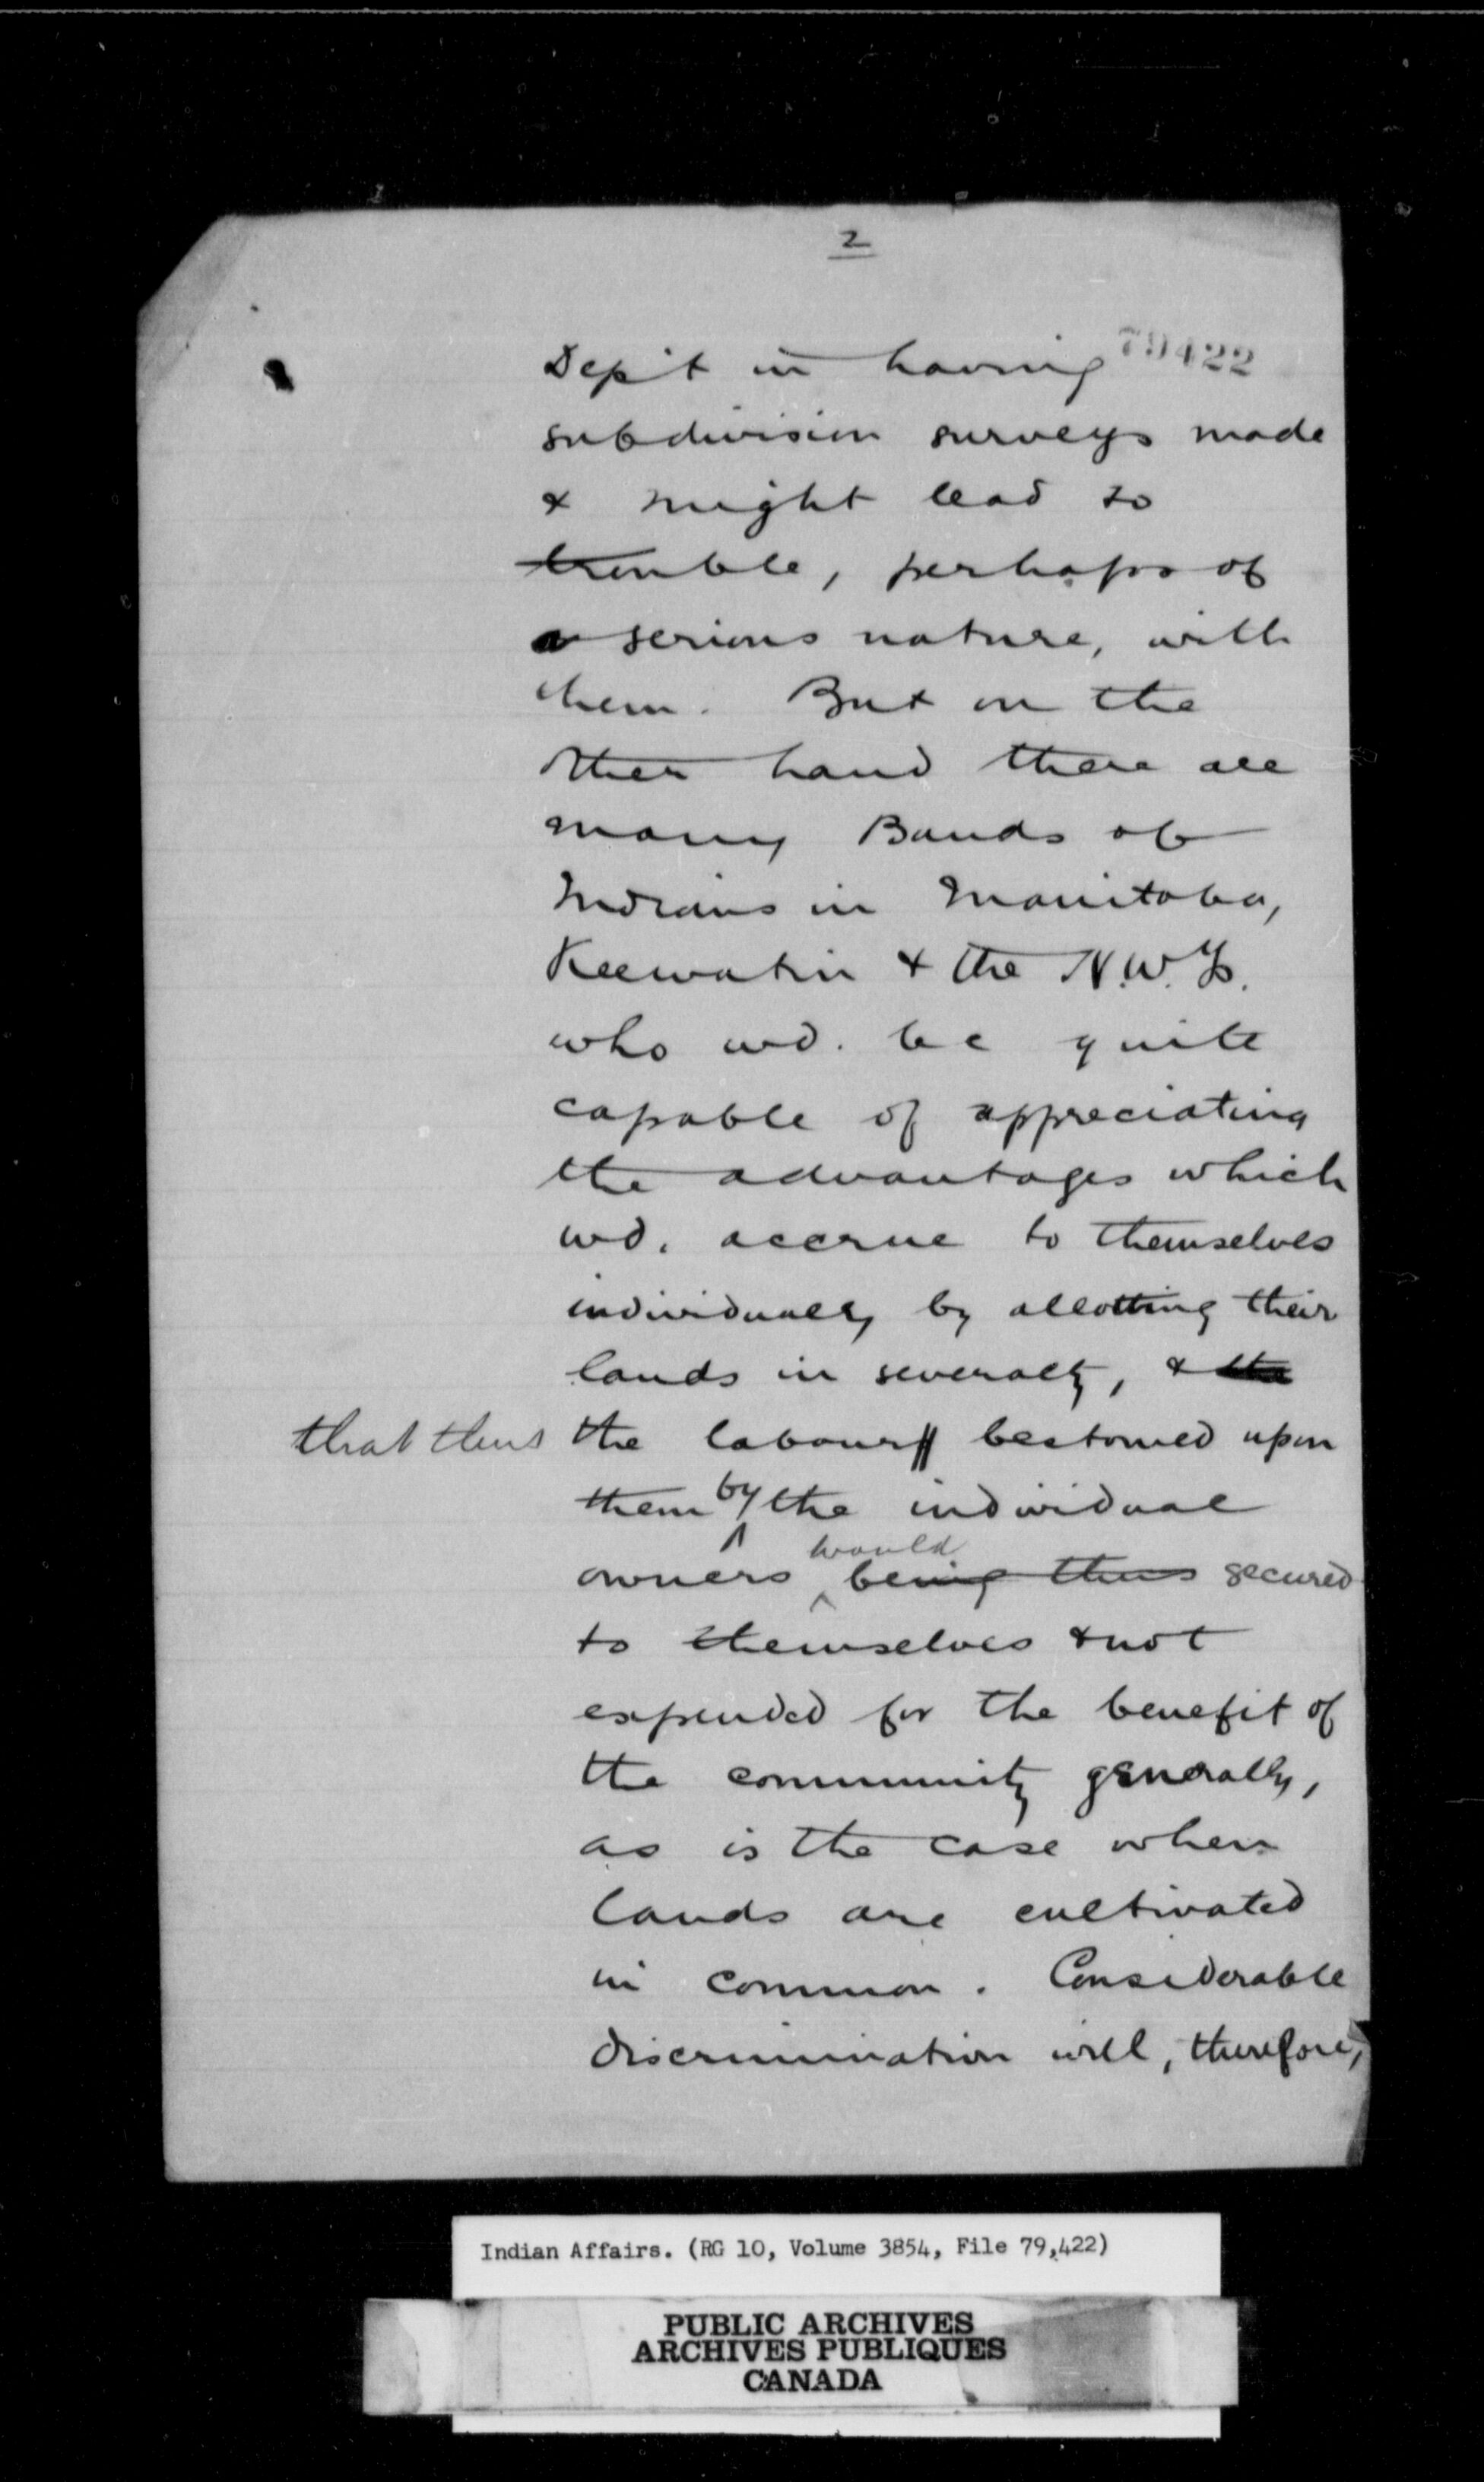 2
79422
Dep't in having
subdivision surveys made
& might lead to
trouble, perhaps of
a serious nature, with
them. But on the
other hand there are
many Bands of
Indians in Manitoba,
Keewatin & the N.W.Ts.
who wd. be quite
capable of appreciating
the advantages which
wd. accrue to themselves
individually by allotting their
lands in severalty, & the
that thus the labour bestowed upon
them by the individual
would
owners being thus secured
to themselves & not
expended for the benefit of
the community generally,
as is the case when
lands are cultivated
in common. Considerable
discrimination will, therefore,
Indian Affairs. (RG 10, Volume 3854, File 79,422)
PUBLIC ARCHIVES
ARCHIVES PUBLIQUES
CANADA